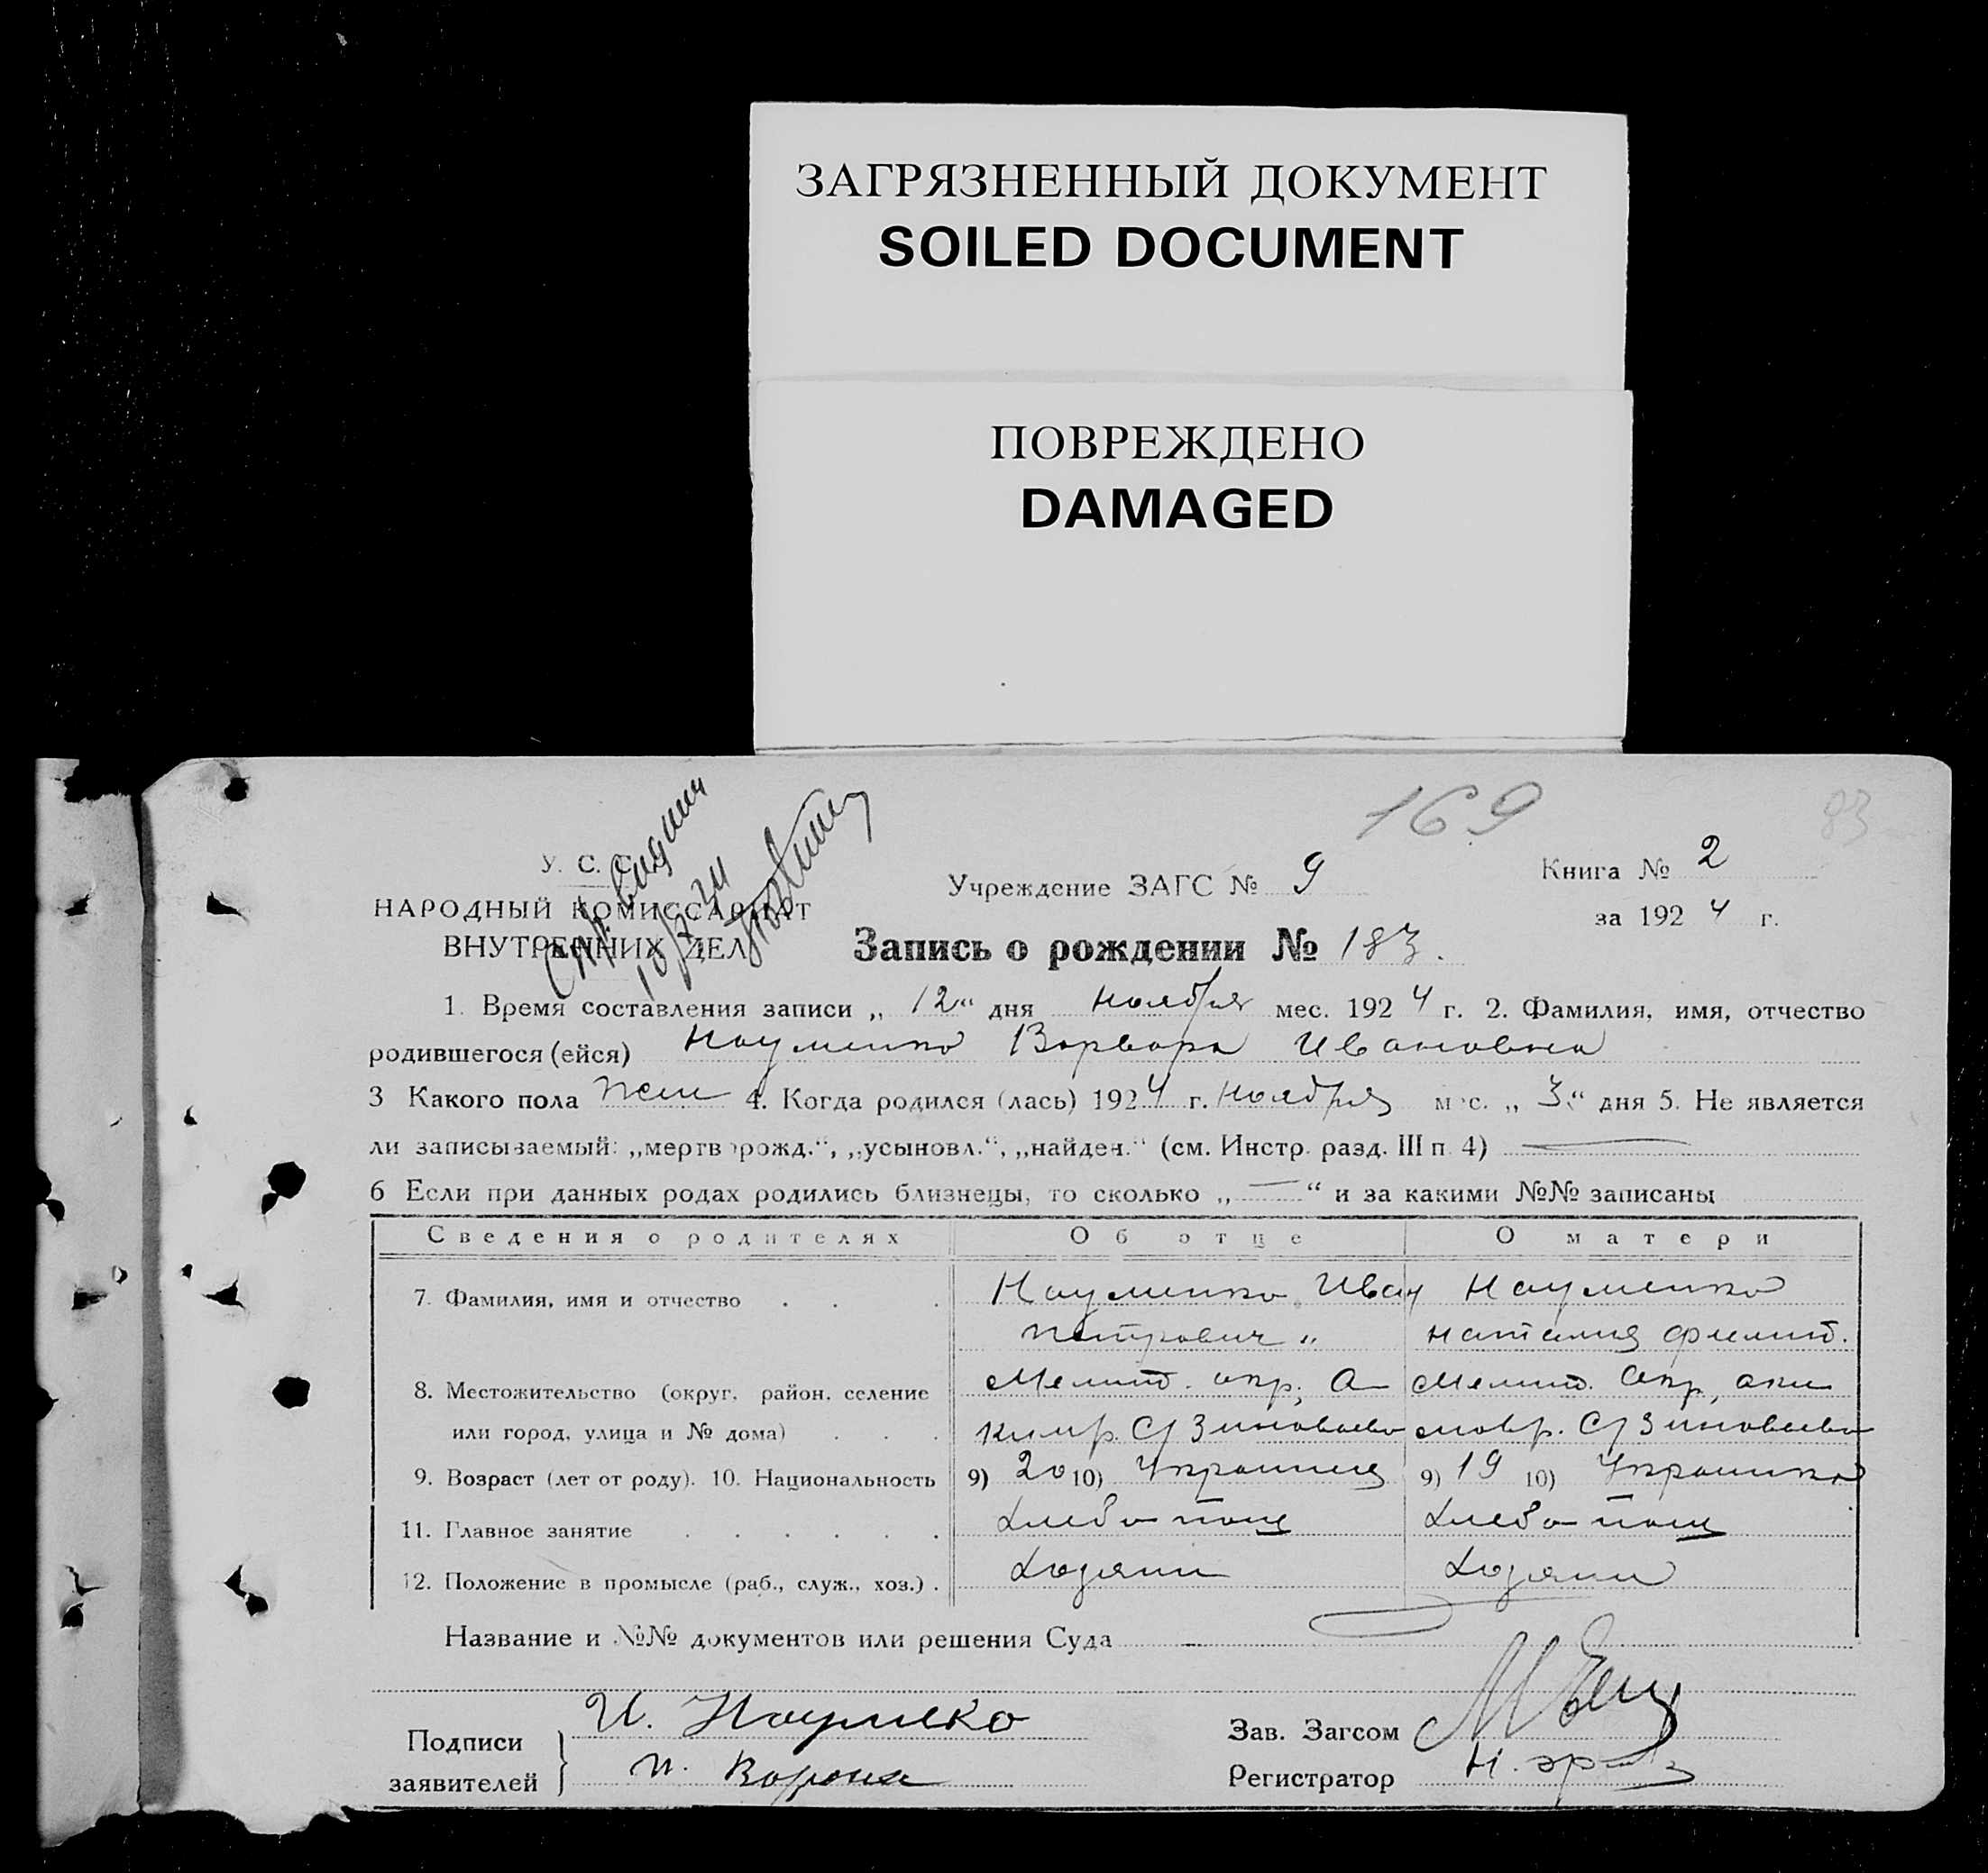 ЗАГРЯЗНЕННЫЙ ДОКУМЕНТ
SOILED DOCUMENT
ПОВРЕЖДЕНО
DAMAGED
169
83
У. С. С.
НАРОДНЫЙ КОМИССАРИАТ
ВНУТРЕННИХ ДЕЛ
Учреждение ЗАГС № 9
Книга № 2
за 1924 г.
Запись о рождении № 183.
1. Время составления записи „12“ дня ноября мес. 1924 г. 2. Фамилия, имя, отчество
родившегося (ейся) Науменко Варвара Ивановна
3 Какого пола жен 4. Когда родился (лась) 1924 г. ноября мес. „3“ дня 5. Не является
ли записываемый: „мертворожд.“, „усыновл.“, „найден.“ (см. Инстр. разд. III п. 4) —
6 Если при данных родах родились близнецы, то сколько „—“ и за какими №№ записаны
Сведения о родителях Об отце О матери
7. Фамилия, имя и отчество . . . Науменко Иван Науменко
Петрович „ Наталия Филип.
8. Местожительство (округ, район, селение Мелит. окр, А- Мелит. Окр, аки
или город, улица и № дома) . . . ким р. С/ Зиновьево мовр. С/ Зиновьево
9. Возраст (лет от роду). 10. Национальность 9) 20 10) Украинец 9) 19 10) Украинка
11. Главное занятие . . . . . . Хлебопаш Хлебопаш
12. Положение в промысле (раб., служ., хоз.) . Хозяин Хозяин
Название и №№ документов или решения Суда —
Подписи
заявителей
И. Наумеко
П. Ворона
Зав. Загсом
Регистратор Н.